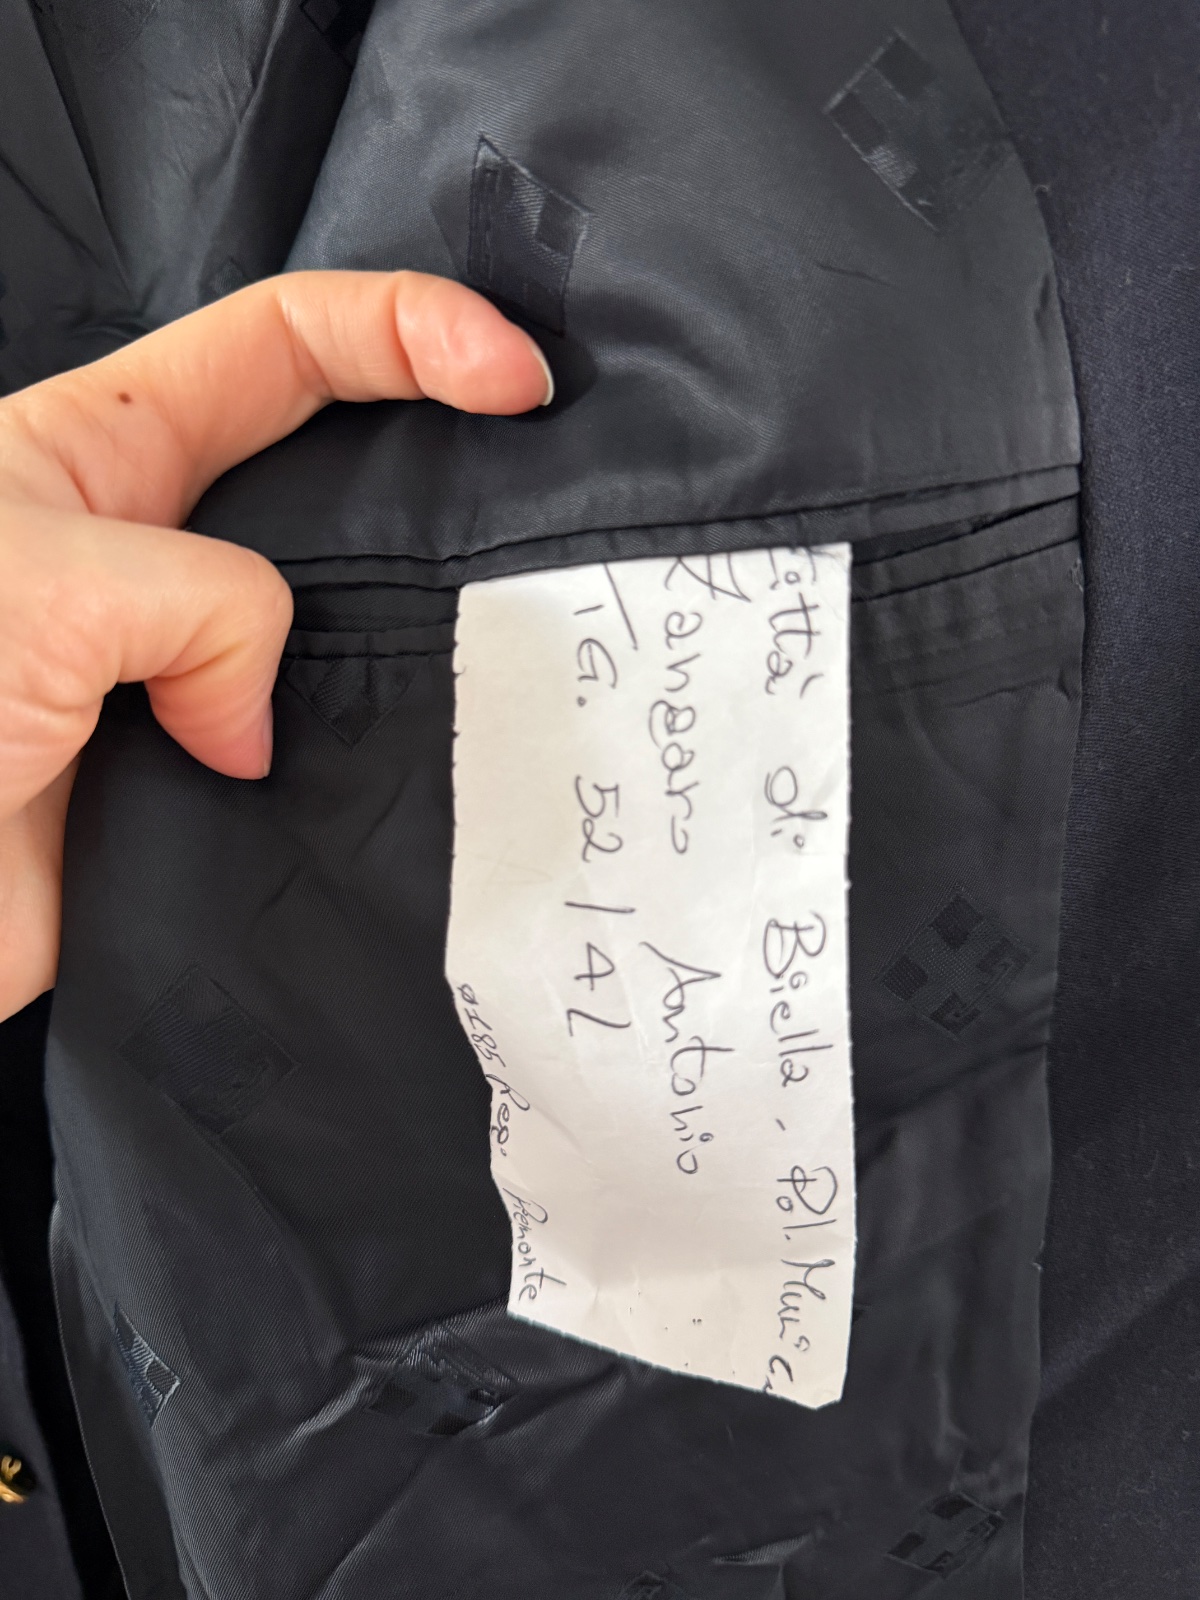 Città di Biella - Pol. Munic
Zangaro Antonio
TG. 52 / 4L
Reg. Piemonte